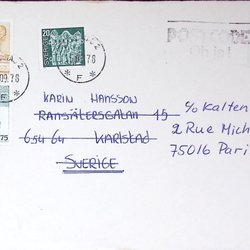 20
SVERIGE
POSTCODE
Oh ja!
09.76
F
KARIN HANSSON
RANSÄTERSGATAN 15
654 64 KARLSTAD
SVERIGE
75
c/o Kalten
2 Rue Mich
75016 Pari